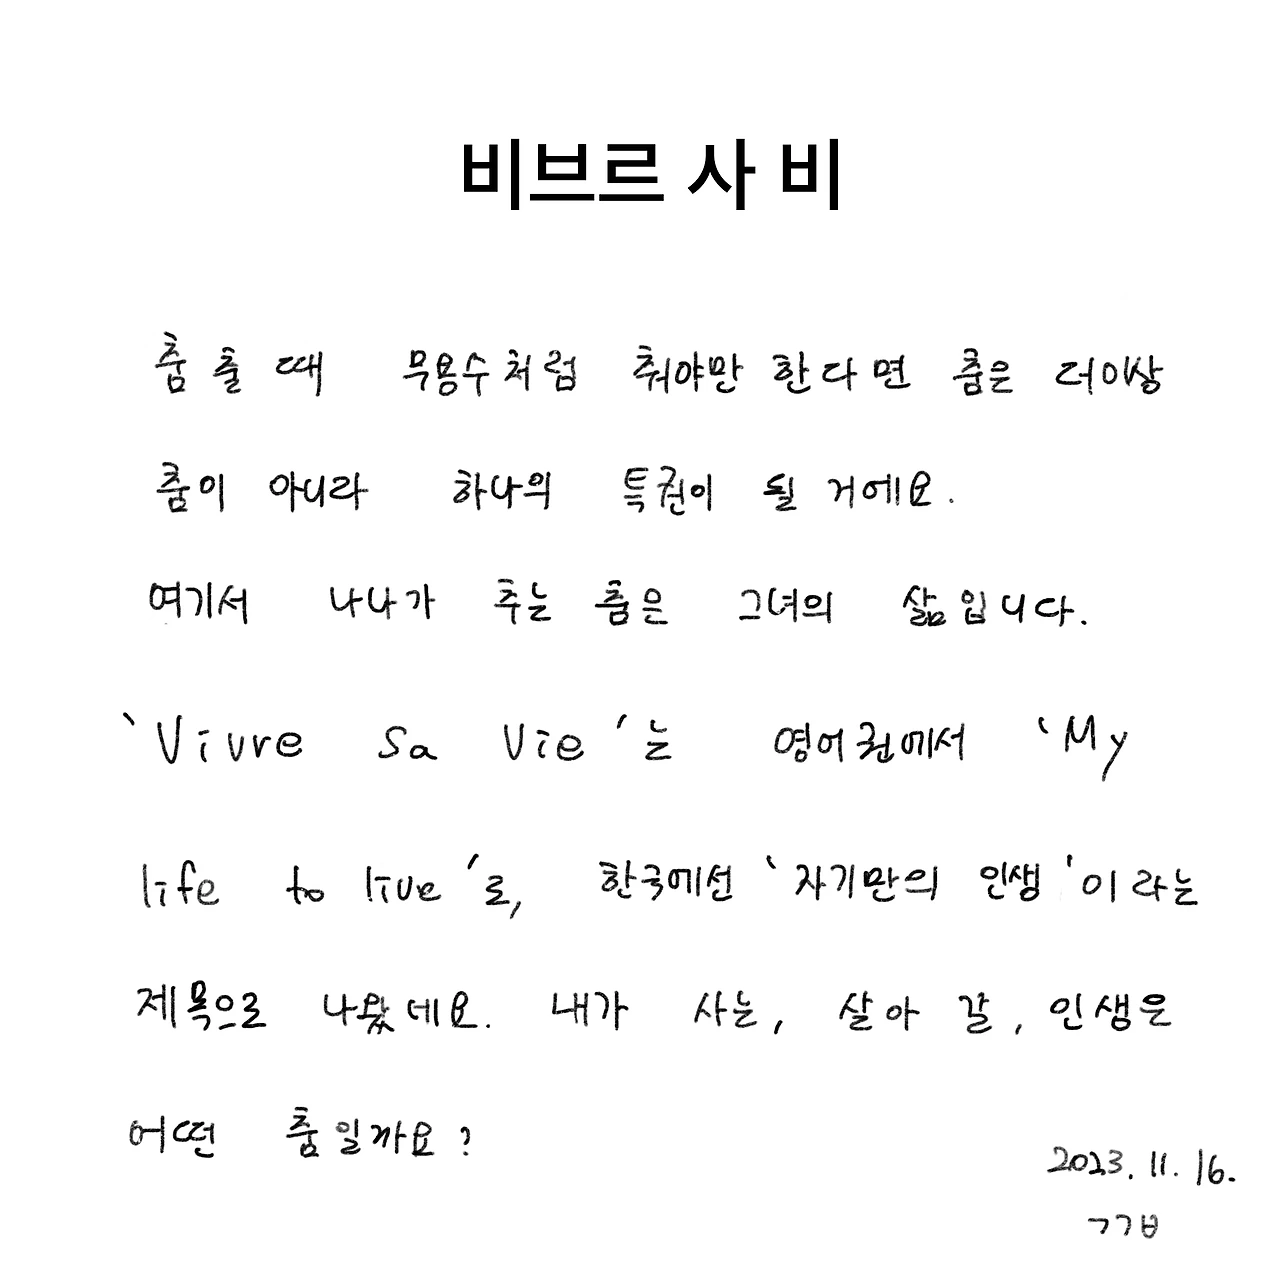 비브르 사 비
춤 출 때 무용수처럼 춰야만 한다면 춤은 더이상
춤이 아니라 하나의 특권이 될 거에요.
여기서 나나가 추는 춤은 그녀의 삶입니다.
`Vivre Sa Vie'는 영어권에서 'My
life to live'로, 한국에선 `자기만의 인생'이라는
제목으로 나왔네요. 내가 사는, 살아 갈, 인생은
어떤 춤일까요?
2023. 11. 16.
ㄱㄱㅂ